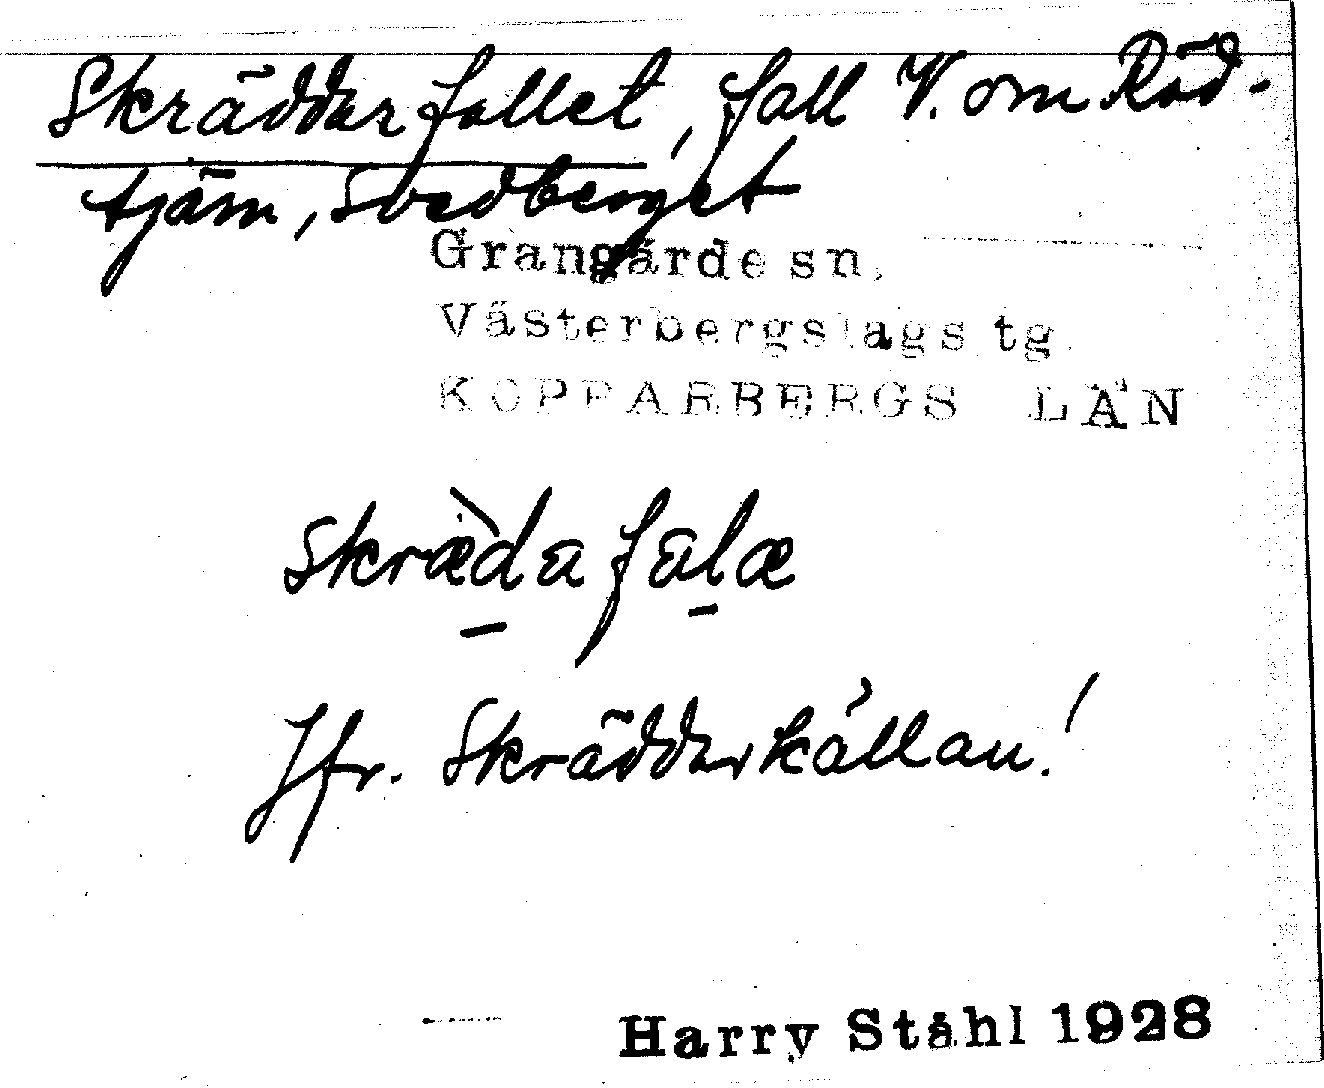 Skräddarfallet, fall V. om Röd-
tjärn, Svedberget
Grangärde sn.
Västerbergslags tg.
KOPPARBERGS LÄN
skræ̀da falæ
Jfr. Skräddarkällan!
Harry Ståhl 1928